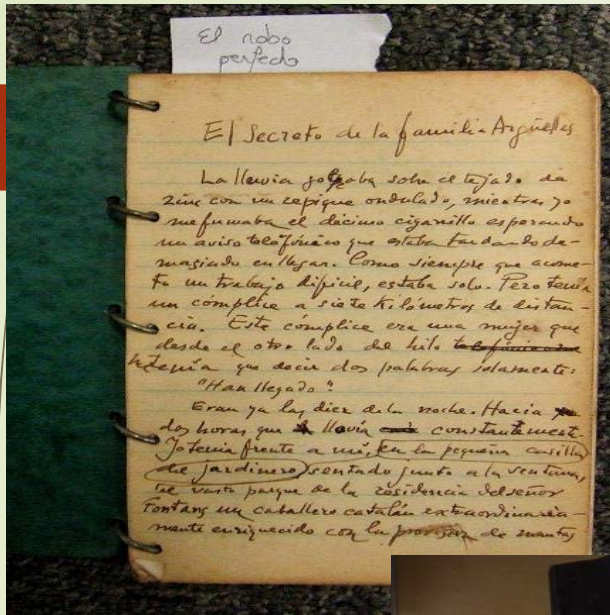 El robo
perfecto
El Secreto de la familia Argüelles
La lluvia golpaba sobre el tejado de
zinc con un repique ondulado, mientras yo
me fumaba el décimo cigarrillo esperando
un aviso telefónico que estaba tardando de-
masiado en llegar. Como siempre que acome-
to un trabajo difícil, estaba solo. Pero tenía
un cómplice a siete kilómetros de distan-
cia. Este cómplice era una mujer que
desde el otro lado del hilo
tenía que decir dos palabras solamente:
"Han llegado".
Eran ya las diez de la noche. Hacía
dos horas que llovía constantemente.
Yo tenía frente a mí, en la pequeña casilla
de jardinero, sentado junto a la ventana,
el vasto parque de la residencia del señor
Fontans un caballero catalán extraordinaria-
mente enriquecido con la de mantas